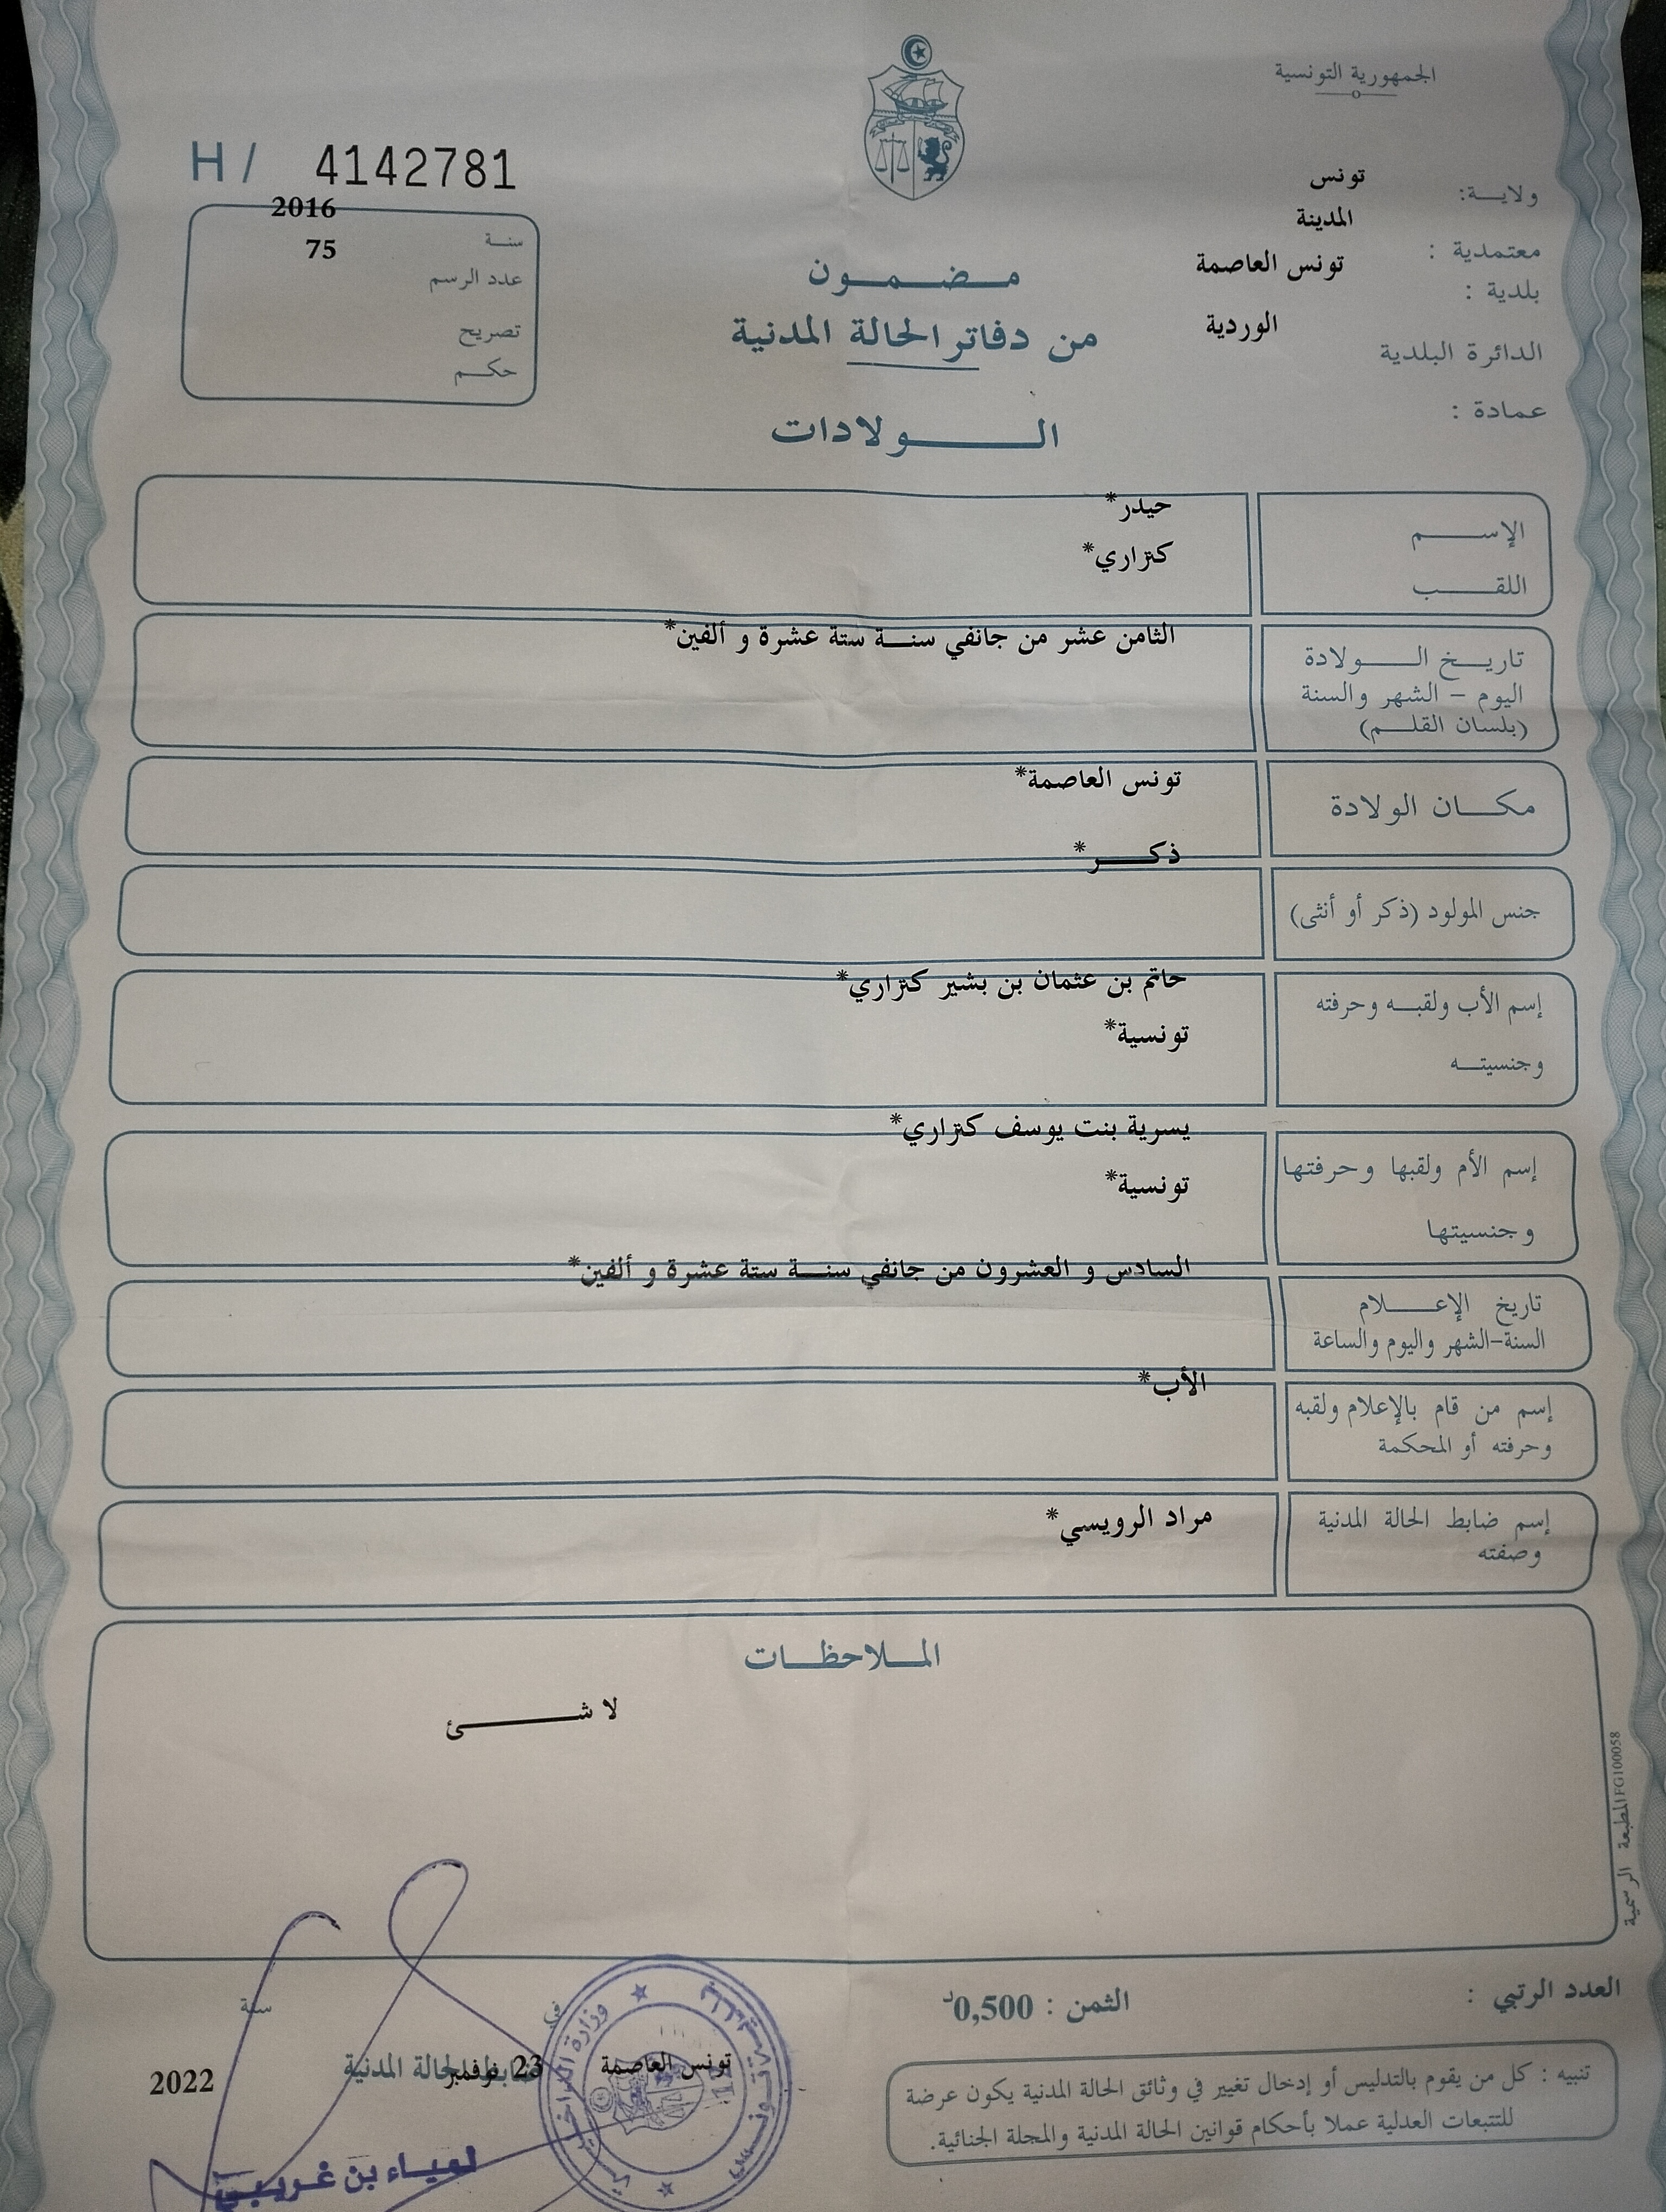 الجمهورية التونسية
H / 4142781
ولايــة: تونس
معتمدية : المدينة
بلدية : تونس العاصمة
الدائرة البلدية الوردية
عمادة :
سنـة 2016
عدد الرسم 75
تصريح
حكـم
مـضـمـون
من دفاتر الحالة المدنية
الـولادات
الإســـم حيدر*
اللقـــب كنزاري*
تاريـخ الـــولادة الثامن عشر من جانفي سنــة ستة عشرة و ألفين*
اليوم - الشهر والسنة
(بلسان القلـم)
مكــان الولادة تونس العاصمة*
جنس المولود (ذكر أو أنثى) ذكــر*
إسم الأب ولقبـه وحرفته حاتم بن عثمان بن بشير كنزاري*
وجنسيتـه تونسية*
إسم الأم ولقبها وحرفتها يسرية بنت يوسف كنزاري*
وجنسيتها تونسية*
تاريخ الإعـــلام السادس و العشرون من جانفي سنــة ستة عشرة و ألفين*
السنة-الشهر واليوم والساعة
إسم من قام بالإعلام ولقبه الأب*
وحرفته أو المحكمة
إسم ضابط الحالة المدنية مراد الرويسي*
وصفته
الملاحظـات
لا شــــئ
المطبعة الرسمية FG100058
العدد الرتبي :
الثمن : 0,500د
تونس العاصمة في 23 نوفمبر سنة 2022
ضابط الحالة المدنية
وزارة الداخلية
لمياء بن غريبي
تنبيه : كل من يقوم بالتدليس أو إدخال تغيير في وثائق الحالة المدنية يكون عرضة
للتتبعات العدلية عملا بأحكام قوانين الحالة المدنية والمجلة الجنائية.